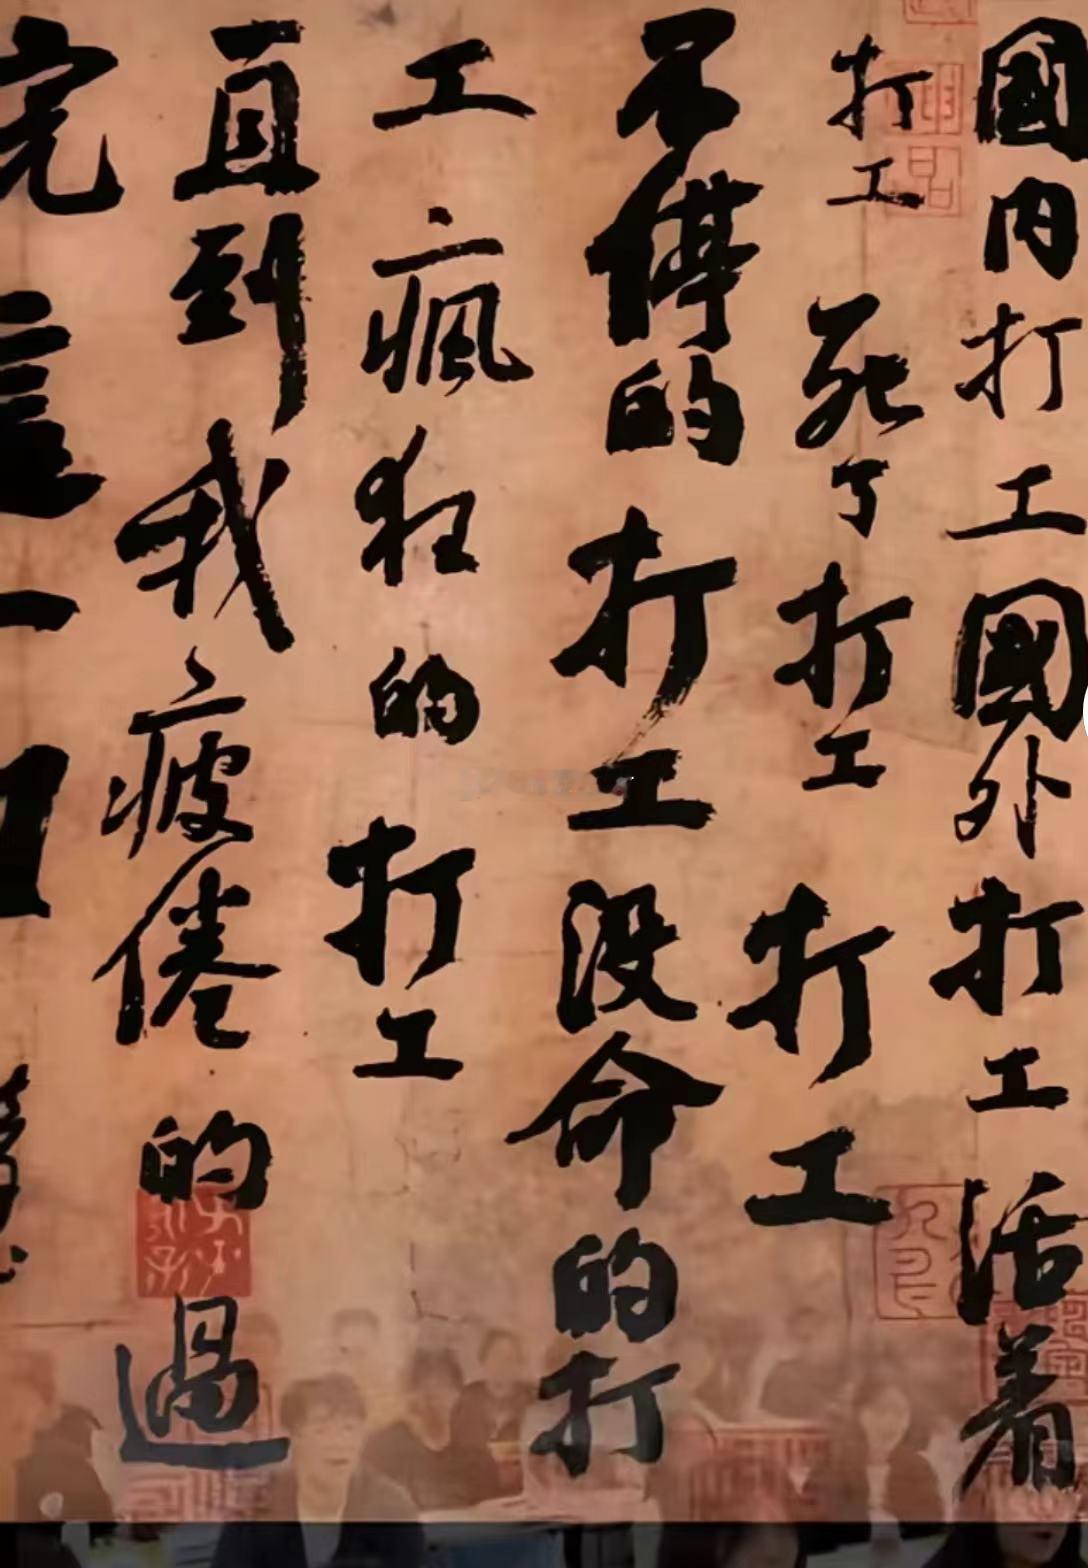 國内打工國外打工活着
打工死了打工打工
不停的打工没命的打
工瘋狂的打工
直到我疲倦的過
完這一